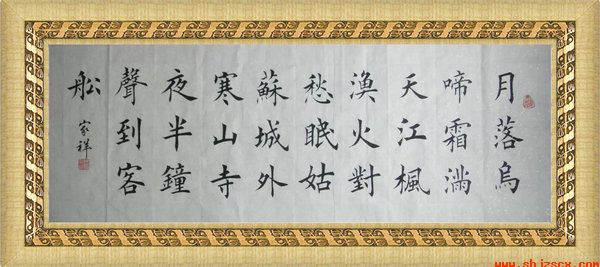 月落烏
啼霜滿
天江楓
漁火對
愁眠姑
蘇城外
寒山寺
夜半鐘
聲到客
舩
家祥
www.shjzscx.com